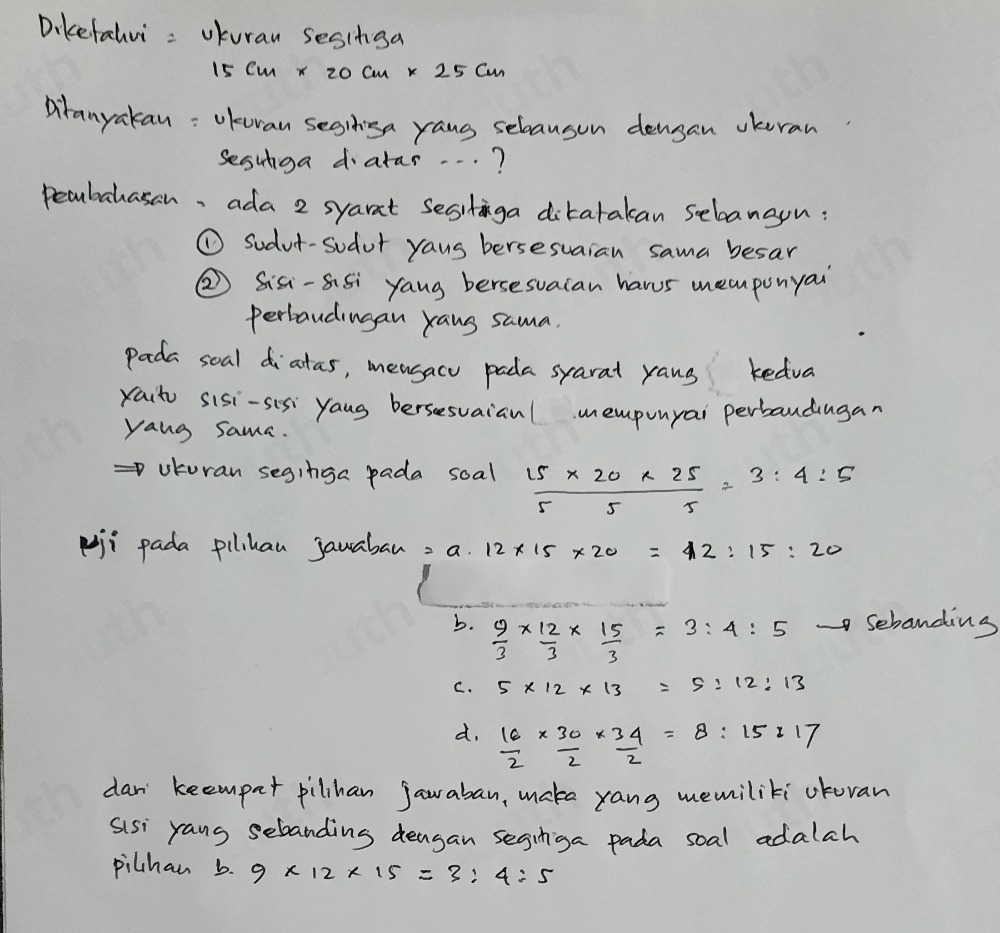 Diketahui = ukuran segitiga
15 cm x 20 cm x 25 cm
Ditanyakan = ukuran segitiga yang sebangun dengan ukuran
segitiga diatas ...?
Pembahasan = ada 2 syarat segitiga dikatakan sebangun :
① sudut-sudut yang bersesuaian sama besar
② sisi-sisi yang bersesuaian harus mempunyai
perbandingan yang sama.
pada soal diatas, mengacu pada syarat yang kedua
yaitu sisi-sisi yang bersesuaian mempunyai perbandingan
yang sama.
⇒ ukuran segitiga pada soal 15/5 x 20/5 x 25/5 = 3 : 4 : 5
uji pada pilihan jawaban = a. 12 x 15 x 20 = 12 : 15 : 20
b. 9/3 x 12/3 x 15/3 = 3 : 4 : 5 → sebanding
c. 5 x 12 x 13 = 5 : 12 : 13
d. 16/2 x 30/2 x 34/2 = 8 : 15 : 17
dari keempat pilihan jawaban, maka yang memiliki ukuran
sisi yang sebanding dengan segitiga pada soal adalah
pilihan b. 9 x 12 x 15 = 3 : 4 : 5